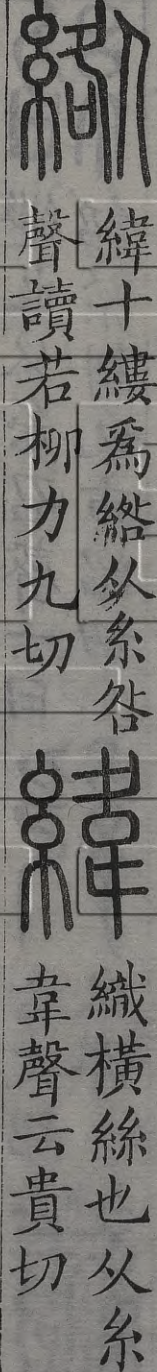 綹
緯十縷爲綹从糸咎
聲讀若柳力九切
緯
織橫絲也从糸
韋聲云貴切